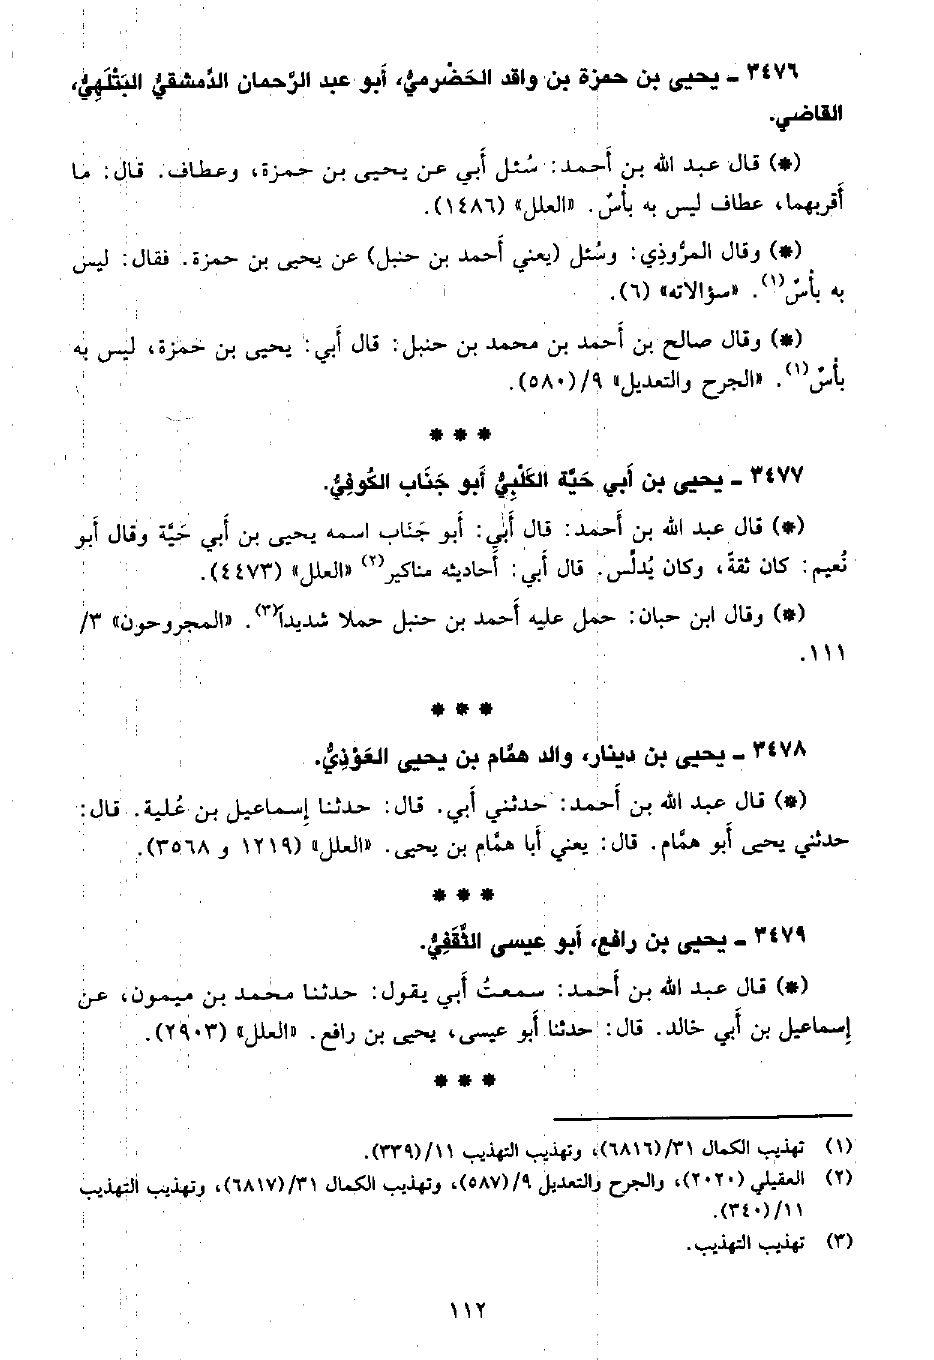 ٣٤٧٦ ـ يحيى بن حمزة بن واقد الحَضْرميُّ، أبو عبد الرَّحمان الدِّمشقيُّ البَتْلَهِيُّ،
القاضي.
(*) قال عبد الله بن أَحمد: سُئل أَبي عن يحيى بن حمزة، وعطاف. قال: ما
أَقربهما، عطاف ليس به بأْسٌ. «العلل» (١٤٨٦).
(*) وقال المرُّوذِي: وسُئل (يعني أَحمد بن حنبل) عن يحيى بن حمزة. فقال: ليس
به بأْسٌ(١). «سؤالاته» (٦).
(*) وقال صالح بن أَحمد بن محمد بن حنبل: قال أَبي: يحيى بن حمزة، ليس به
بأْسٌ(١). «الجرح والتعديل» ٩/(٥٨٠).
* * *
٣٤٧٧ ـ يحيى بن أَبي حَيَّة الكَلْبِيُّ أَبو جَنَاب الكُوفِيُّ.
(*) قال عبد الله بن أَحمد: قال أَبي: أَبو جَنَاب اسمه يحيى بن أَبي حَيَّة وقال أَبو
نُعيم: كان ثقةً، وكان يُدلِّس. قال أَبي: أَحاديثه مناكير(٢) «العلل» (٤٤٧٣).
(*) وقال ابن حبان: حمل عليه أَحمد بن حنبل حملا شديداً(٣). «المجروحون» ٣/
١١١.
* * *
٣٤٧٨ ـ يحيى بن دينار، والد همَّام بن يحيى العَوْذِيُّ.
(*) قال عبد الله بن أَحمد: حدثني أَبي. قال: حدثنا إِسماعيل بن عُلية. قال:
حدثني يحيى أَبو همَّام. قال: يعني أَبا همَّام بن يحيى. «العلل» (١٢١٩ و ٣٥٦٨).
* * *
٣٤٧٩ ـ يحيى بن رافع، أَبو عيسى الثَّقَفِيُّ.
(*) قال عبد الله بن أَحمد: سمعتُ أَبي يقول: حدثنا محمد بن ميمون، عن
إِسماعيل بن أَبي خالد. قال: حدثنا أَبو عيسى، يحيى بن رافع. «العلل» (٢٩٠٣).
* * *
(١) تهذيب الكمال ٣١/(٦٨١٦)، وتهذيب التهذيب ١١/(٣٣٩).
(٢) العقيلي (٢٠٢٠)، والجرح والتعديل ٩/(٥٨٧)، وتهذيب الكمال ٣١/(٦٨١٧)، وتهذيب التهذيب
١١/(٣٤٠).
(٣) تهذيب التهذيب.
١١٢